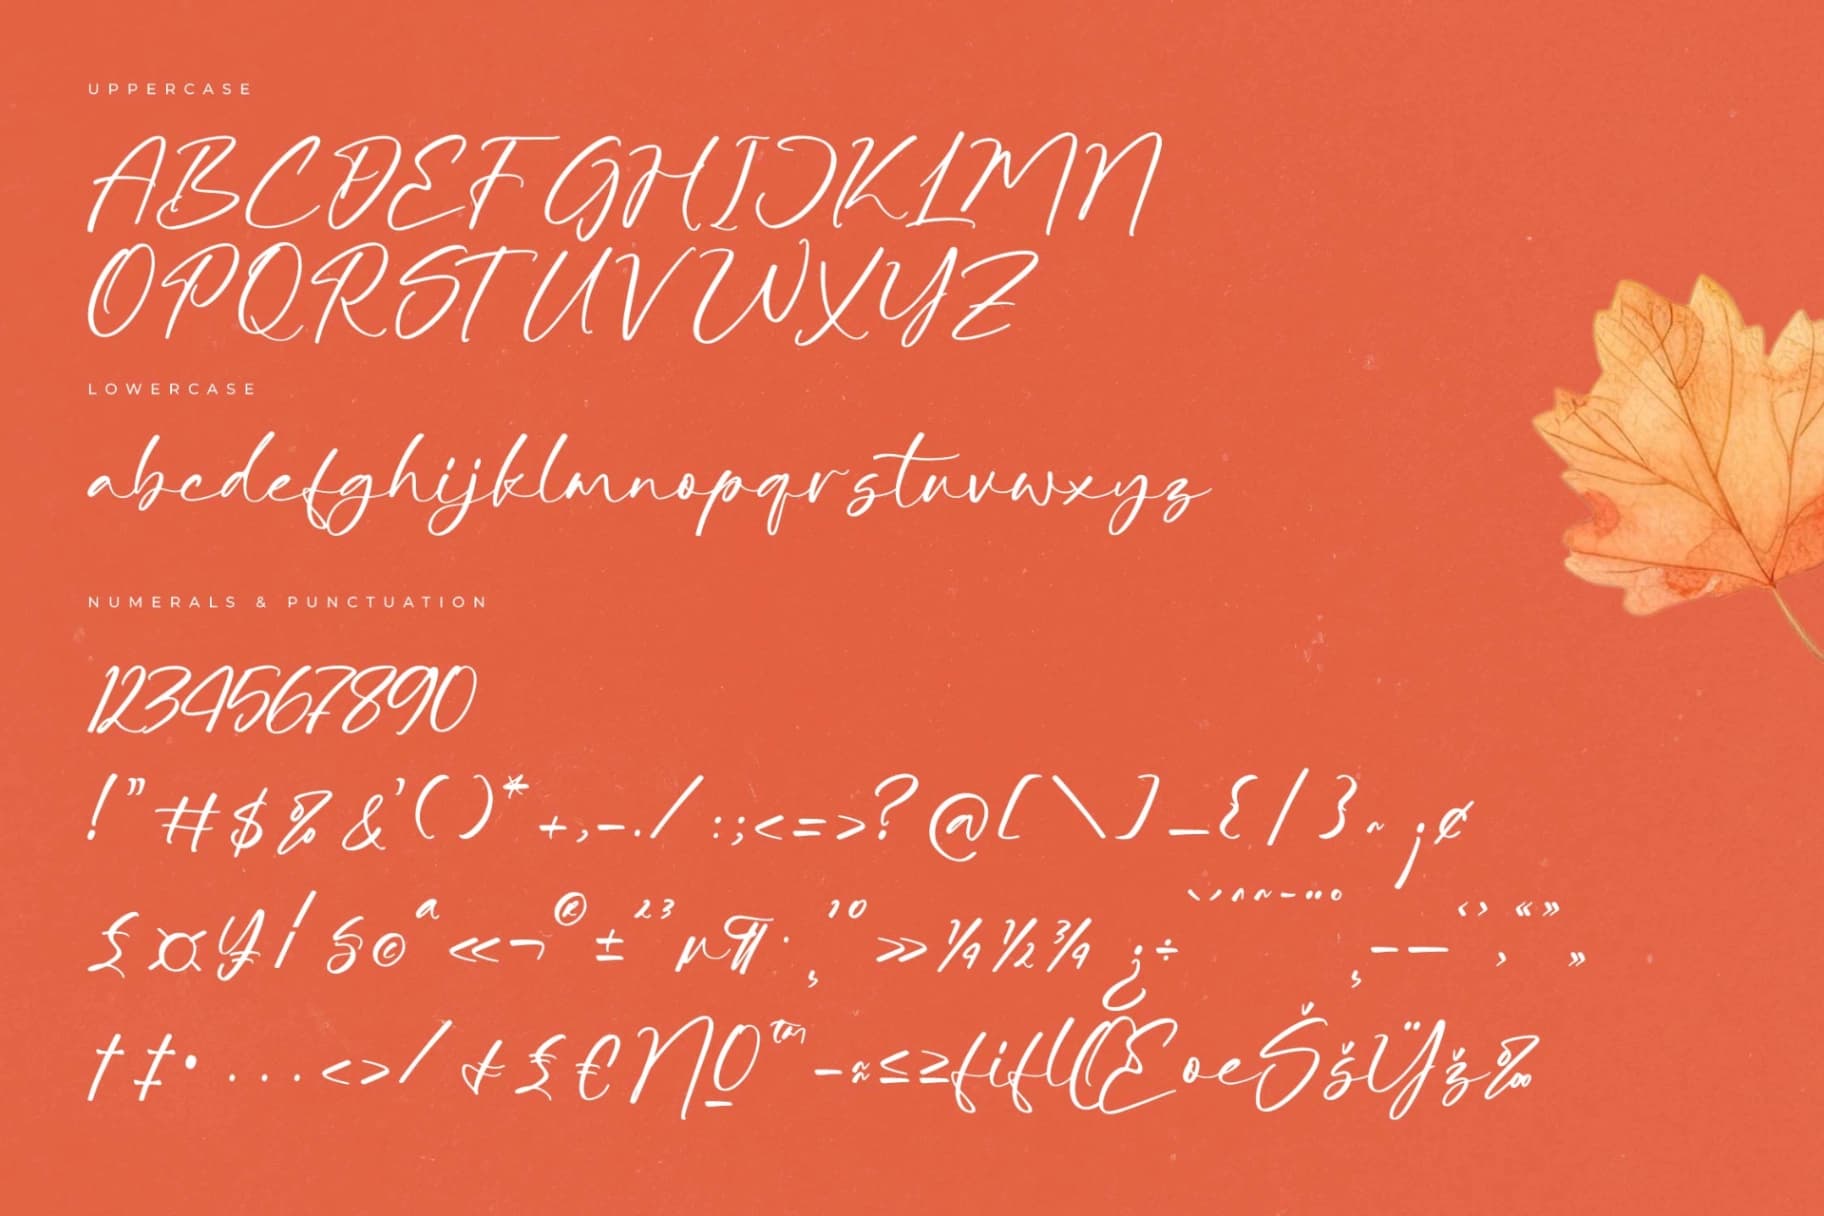 UPPERCASE
ABCDEFGHIJKLMN
OPQRSTUVWXYZ
LOWERCASE
abcdefghijklmnopqrstuvwxyz
NUMERALS & PUNCTUATION
1234567890
!"#$%&'()*+,-./:;<=>?@[\]_{|}~¡¢
£¤¥¦§©ª«¬®±²³µ¶·¸¹º»¼½¾¿÷
†‡•...‹›⁄ ₣€№™−≈≤≥fiflŒœŠšŸž‰